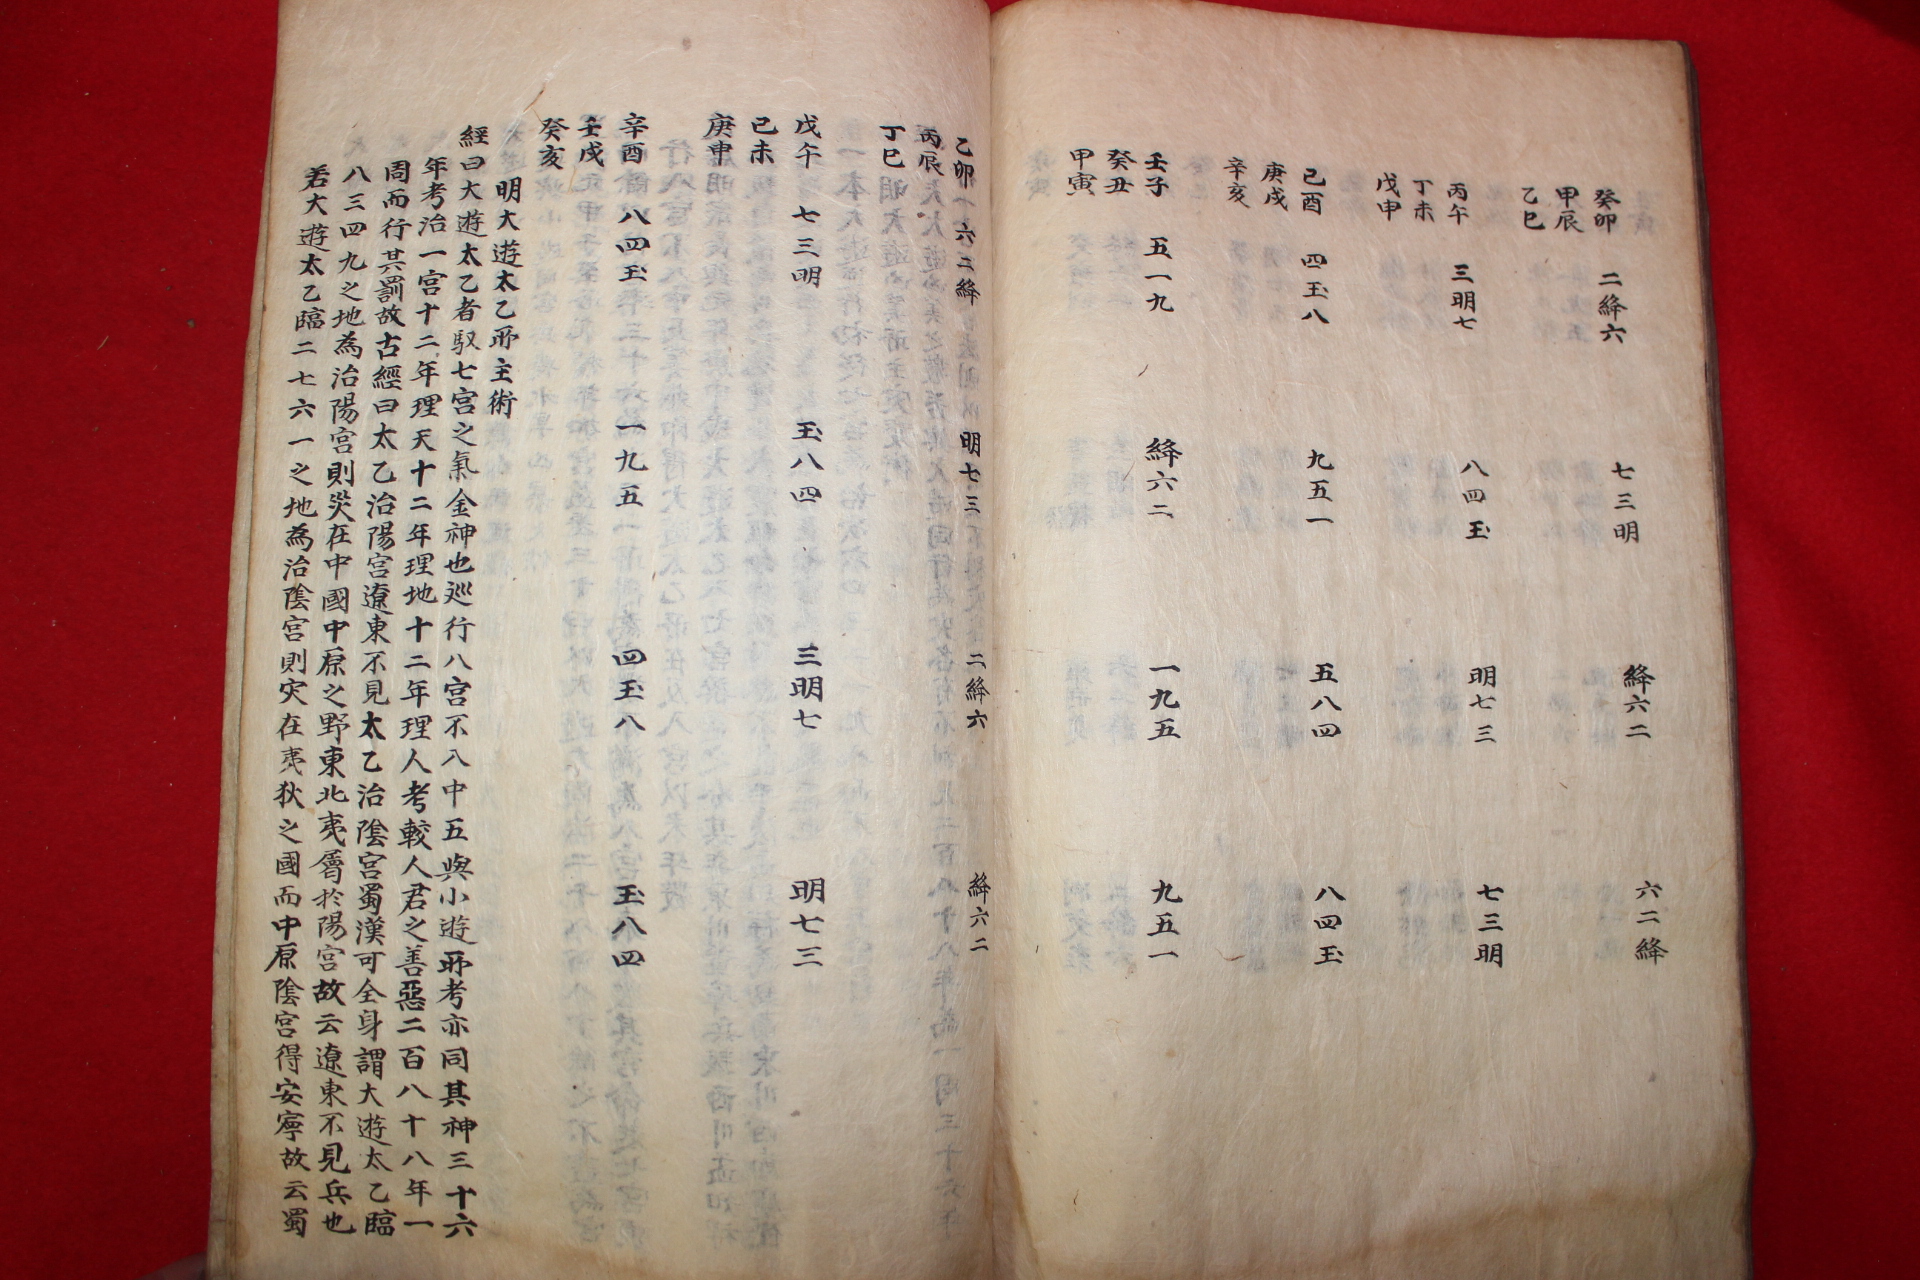 癸卯 二絳六 七三明 絳六二 六二絳
甲辰
乙巳
丙午 三明七 八四玉 明七三 七三明
丁未
戊申
己酉 四玉八 九五一 五八四 八四玉
庚戌
辛亥
壬子 五一九 絳六二 一九五 九五一
癸丑
甲寅
乙卯 六二絳 明七三 二絳六 絳六二
丙辰
丁巳
戊午 七三明 玉八四 三明七 明七三
已未
庚申
辛酉 八四玉 一九五 四玉八 玉八四
壬戌
癸亥
明大遊太乙所主術
經曰大遊太乙者馭七宮之氣金神也巡行八宮不入中五與小遊所考亦同其神三十六
年考治一宮十二年理天十二年理地十二年理人考較人君之善惡二百八十八年一
周而行其罰故古經曰太乙治陽宮遼東不見太乙治陰宮蜀漢可全身謂大遊太乙臨
八三四九之地為治陽宮則災在中國中原之野東北夷屬於陽宮故云遼東不見兵也
若大遊太乙臨二七六一之地為治陰宮則灾在夷狄之國而中原陰宮得安寧故云蜀